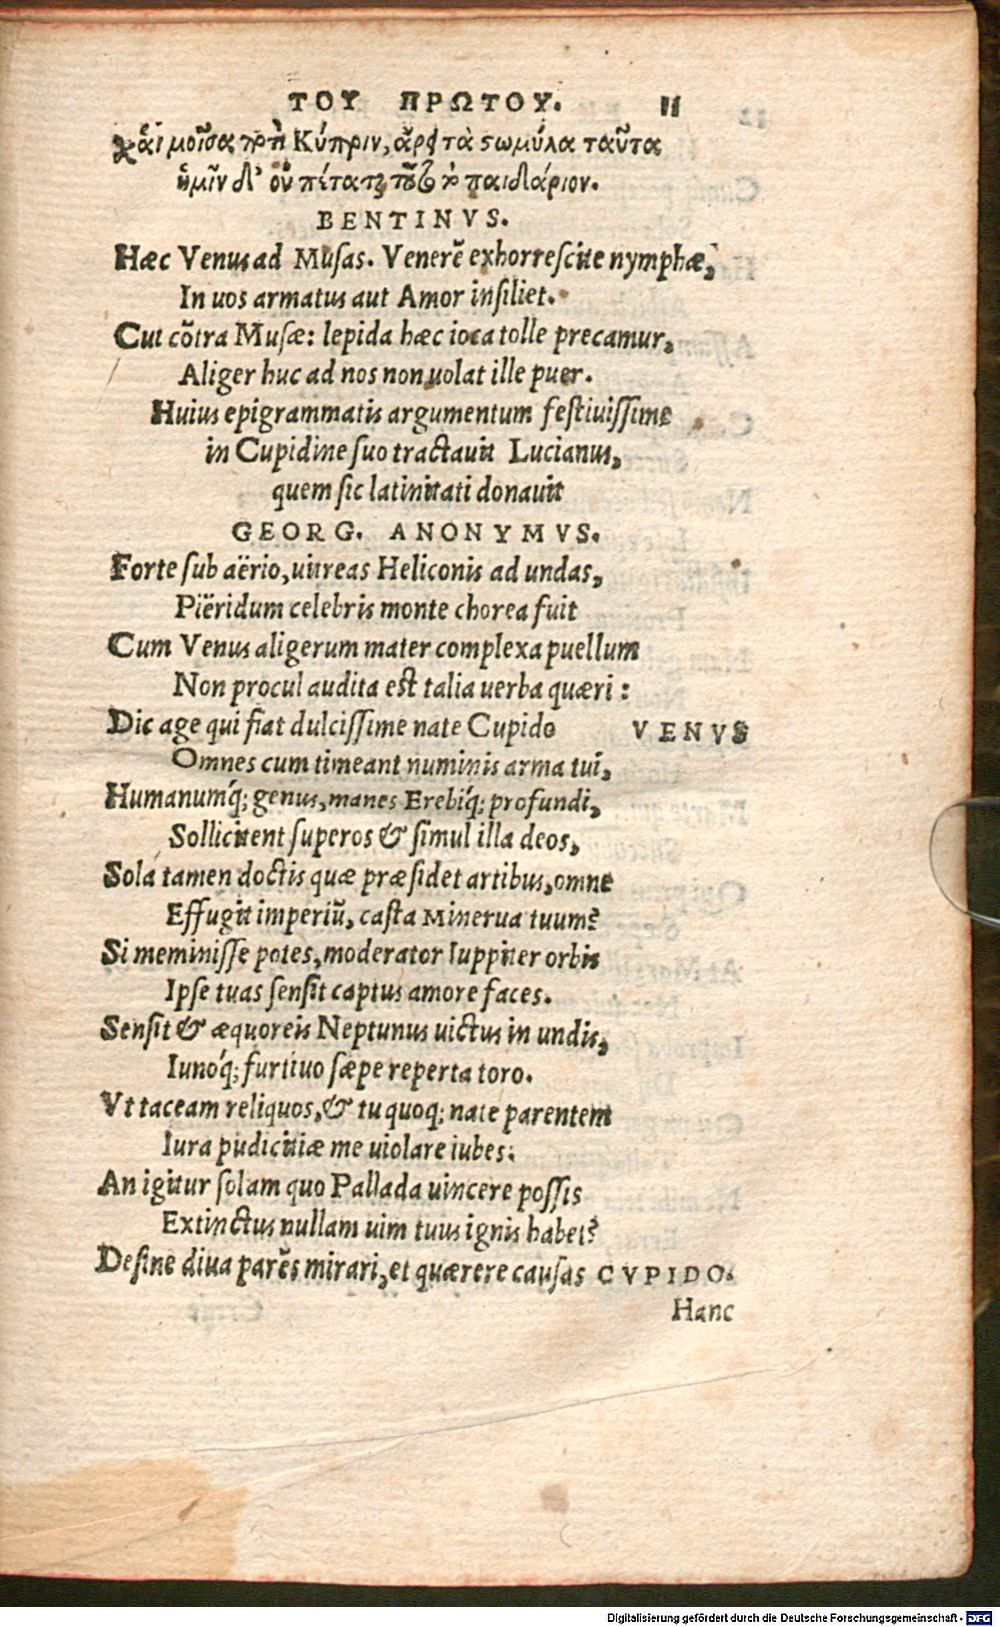 ΤΟΥ ΠΡΩΤΟΥ. 11
χαἱ μοῖσαι ποτὶ Κύπριν, ἄρει τὰ στωμύλα ταῦτα
ἡμῖν δ' οὐ πέταται τοῦτο τὸ παιδάριον.
BENTINVS.
Hæc Venus ad Musas. Venerē exhorrescite nymphæ,
In uos armatus aut Amor insiliet.
Cui cōtra Musæ: lepida hæc ioca tolle precamur,
Aliger huc ad nos non uolat ille puer.
Huius epigrammatis argumentum festiuissime
in Cupidine suo tractauit Lucianus,
quem sic latinitati donauit
GEORG. ANONYMVS.
Forte sub aërio, uitreas Heliconis ad undas,
Piëridum celebris monte chorea fuit
Cum Venus aligerum mater complexa puellum
Non procul audita est talia uerba quæri:
Dic age qui fiat dulcissime nate Cupido VENVS
Omnes cum timeant numinis arma tui,
Humanumq́; genus, manes Erebiq́; profundi,
Sollicitent superos & simul illa deos,
Sola tamen doctis quæ præsidet artibus, omne
Effugit imperiū, casta Minerua tuum?
Si meminisse potes, moderator Iuppiter orbis
Ipse tuas sensit captus amore faces.
Sensit & æquoreis Neptunus uictus in undis,
Iunoq́; furtiuo sæpe reperta toro.
Vt taceam reliquos, & tu quoq; nate parentem
Iura pudicitiæ me uiolare iubes:
An igitur solam quo Pallada uincere possis
Extinctus nullam uim tuus ignis habet?
Desine diua parēs mirari, et quærere causas CVPIDO.
Hanc
Digitalisierung gefördert durch die Deutsche Forschungsgemeinschaft - DFG